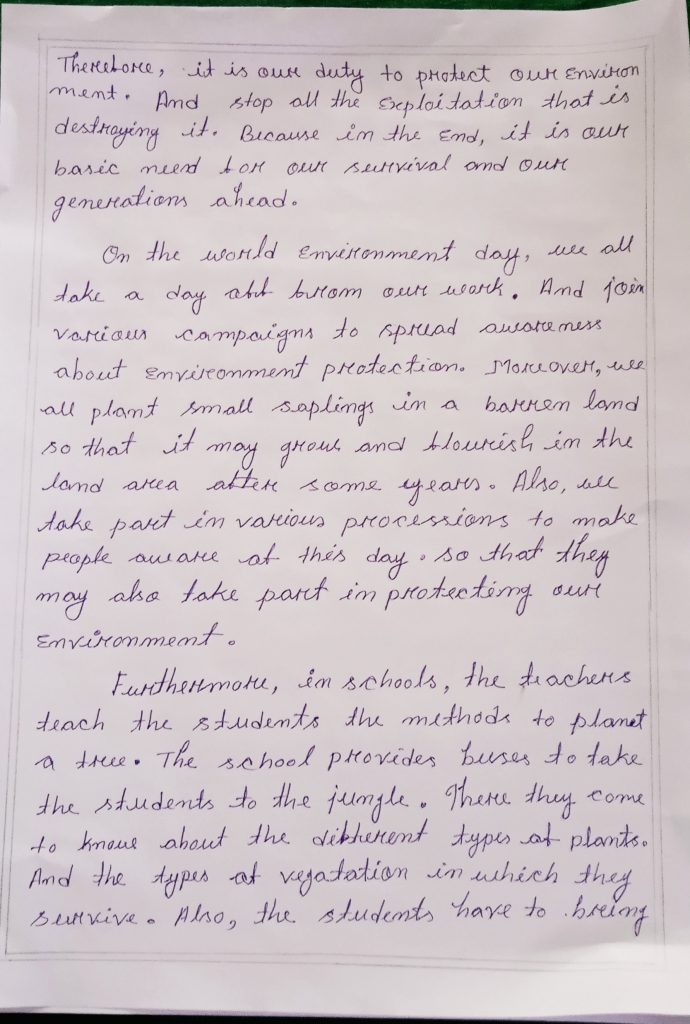 Therefore, it is our duty to protect our Environ
ment. And stop all the Exploitation that is
destroying it. Because in the End, it is our
basic need for our survival and our
generations ahead.
On the world Environment day, we all
take a day off from our work. And join
various campaigns to spread awareness
about Environment protection. Moreover, we
all plant small saplings in a barren land
so that it may grow and flourish in the
land area after some years. Also, we
take part in various processions to make
people aware of this day. so that they
may also take part in protecting our
Environment.
Furthermore, in schools, the teachers
teach the students the methods to planet
a tree. The school provides buses to take
the students to the jungle. There they come
to know about the different types of plants.
And the types of vegatation in which they
survive. Also, the students have to bring